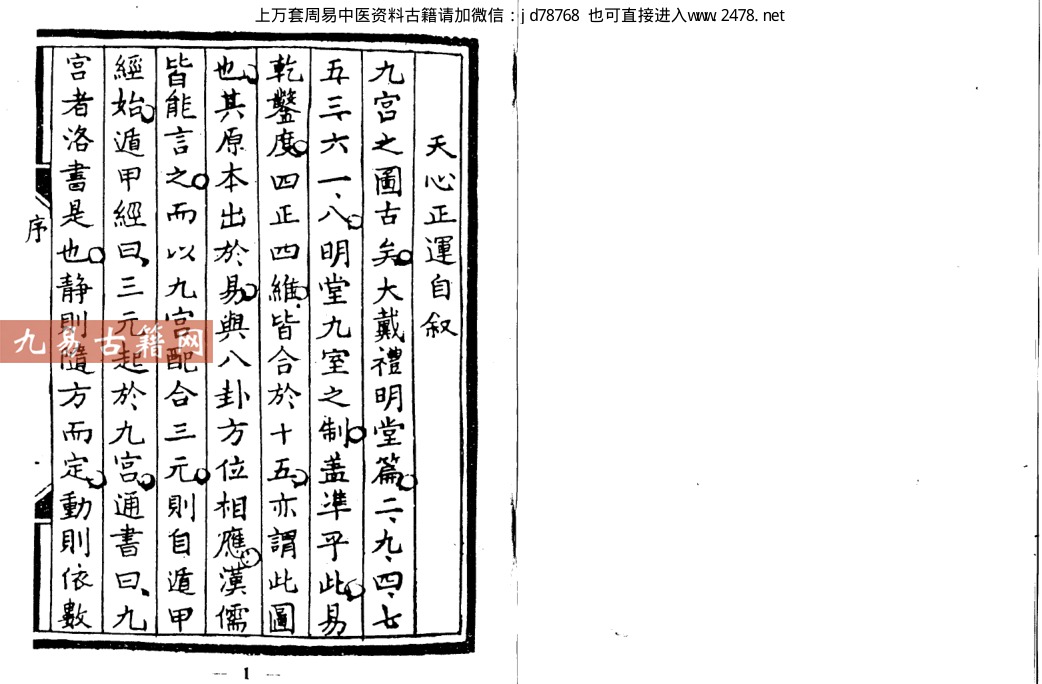 上万套周易中医资料古籍请加微信：jd78768 也可直接进入www.2478.net
天心正運自叙
九宮之圖古矣。大戴禮明堂篇。二、九、四、七
五、三、六一、八。明堂九室之制。盖準乎此。易
乾鑿度。四正四維。皆合於十五。亦謂此圖
也。其原本出於易。與八卦方位相應。漢儒
皆能言之。而以九宮配合三元。則自遁甲
經始。遁甲經曰、三元起於九宮。通書曰、九
宮者洛書是也。静則隨方而定。動則依數
序
九易古籍网
— 1 —